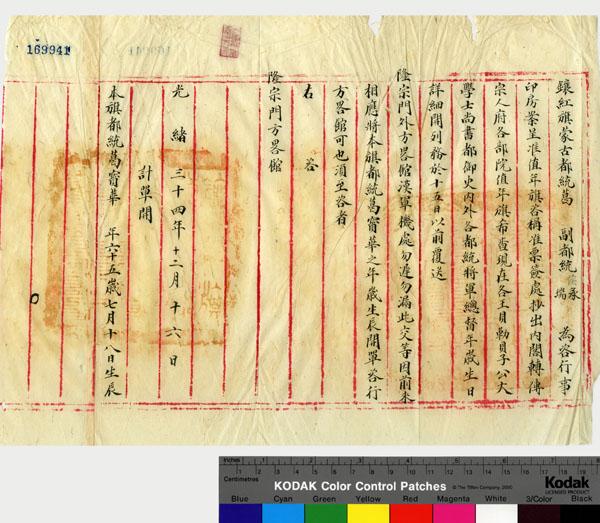 169941
鑲紅旗蒙古都統葛　副都統　為咨行事
印房案呈准值年旗咨稱准票簽處抄出內閣轉傳
宗人府各部院值年旗希查現在各王貝勒貝子公大
學士尚書都御史內外各都統將軍總督年歲生日
詳細開列務於十五日以前覆送
隆宗門外方畧館漢軍機處勿遲勿漏此交等因前來
相應將本旗都統葛寶華之年歲生辰開單咨行
方畧館可也須至咨者
右　咨
隆宗門方畧館
光緒三十四年十二月十六日
計單開
本旗都統葛寶華　年六十五歲七月十八日生辰
Inches
Centimetres
KODAK Color Control Patches
© The Tiffen Company, 2000
Kodak
LICENSED PRODUCT
Blue Cyan Green Yellow Red Magenta White 3/Color Black